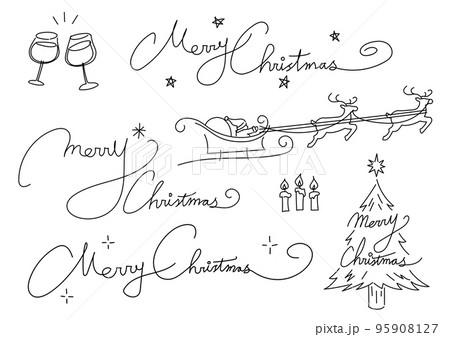 Merry Christmas
merry
Christmas
Merry
Christmas
Merry Christmas
PIXTA
pixta.jp - 95908127